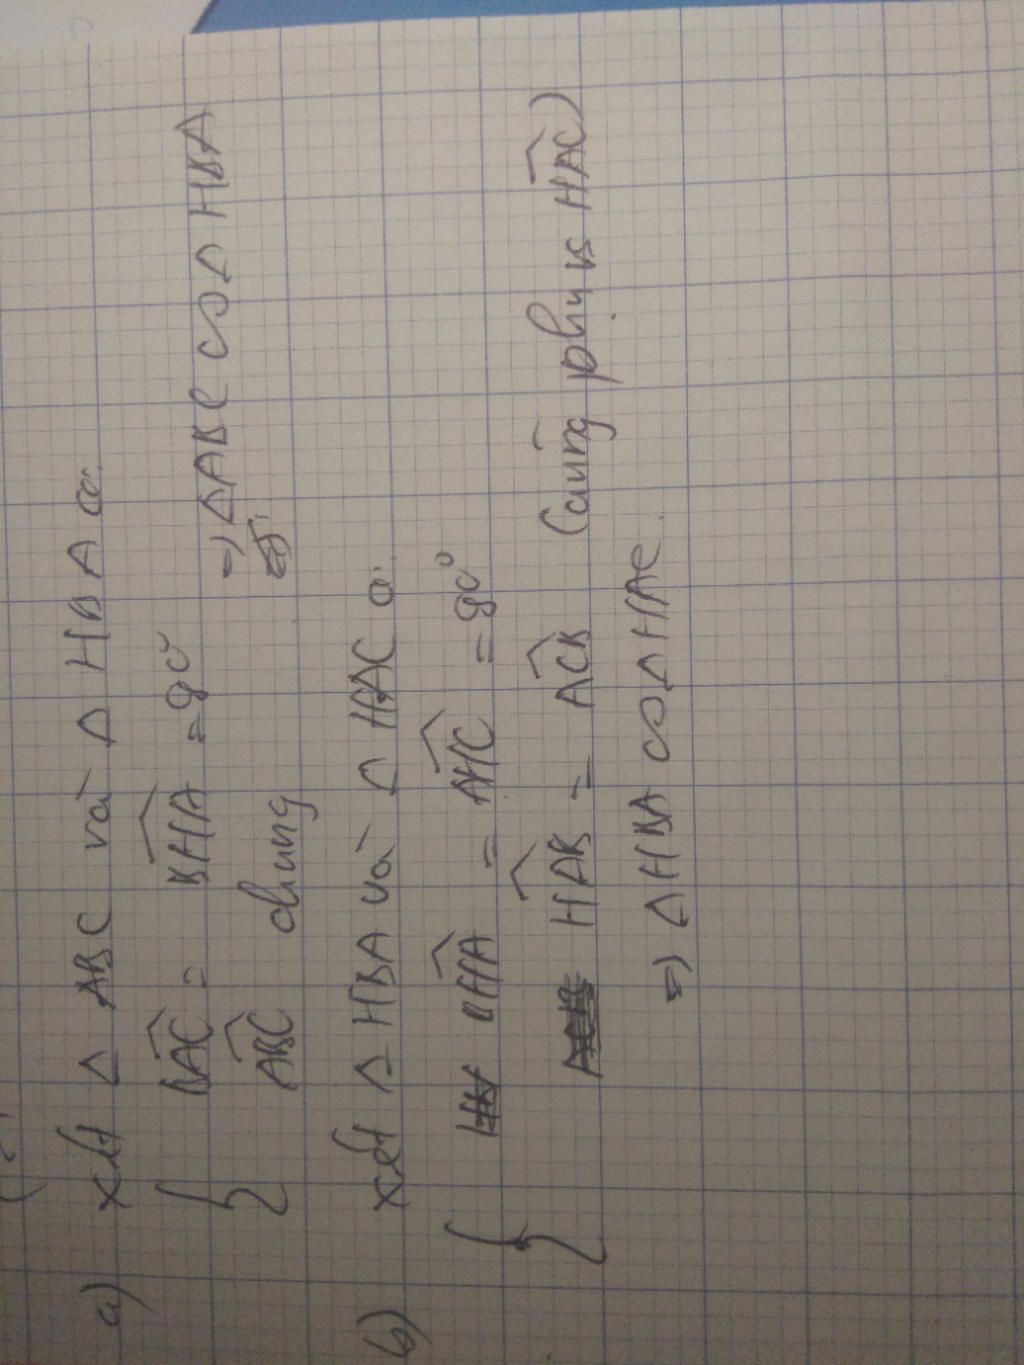 a) xét Δ ABC và Δ HBA có:
{ BAC = BHA = 90°
ABC chung => ΔABC ∽ Δ HBA
b) xét Δ HBA và Δ HAC có:
{ BHA = AHC = 90°
HAB = ACB (cùng phụ vs HAC)
=> Δ HBA ∽ Δ HAC